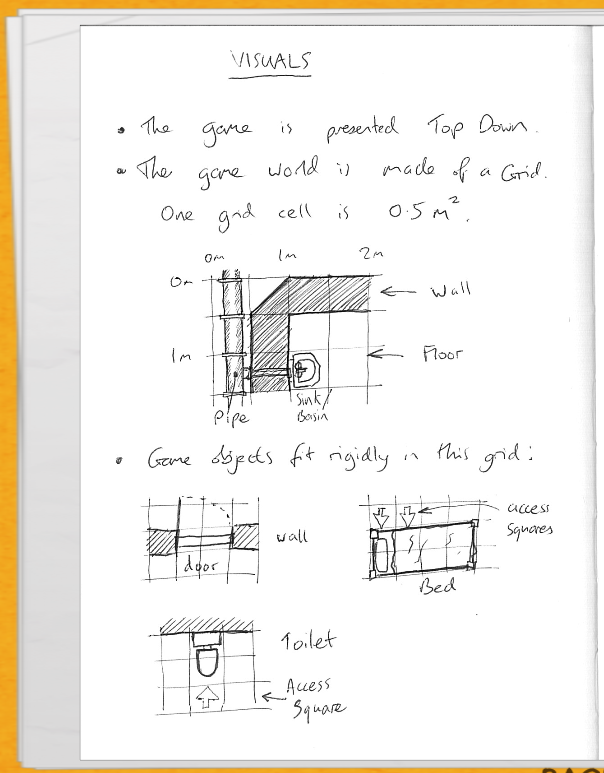 VISUALS
• The game is presented Top Down.
• The game world is made of a Grid.
One grid cell is 0.5 m².
0m 1m 2m
0m
Wall
1m
Floor
Pipe
Sink/
Basin
• Game objects fit rigidly in this grid:
access
squares
wall
door
Bed
Toilet
Access
Square